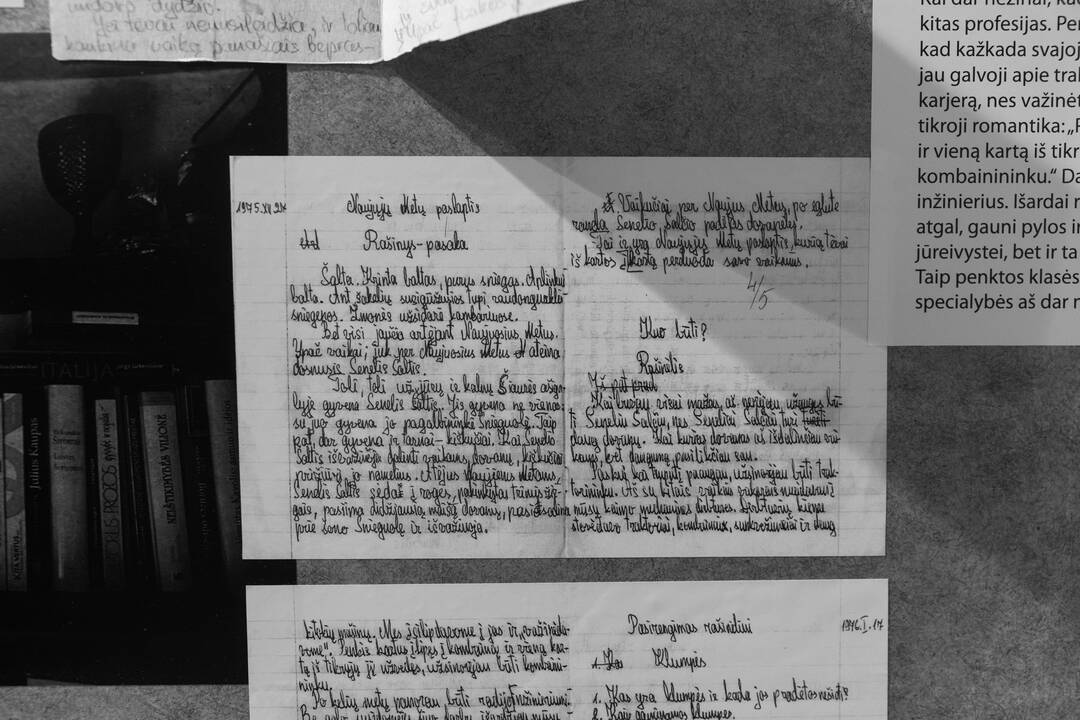 Jei tėvai nemsileidžia, ir toliau
kankina vaiką panašiais bepras-
kitas profesijas. Per
kad kažkada svajoj
jau galvoji apie trak
karjerą, nes važinėt
tikroji romantika: „P
ir vieną kartą iš tikr
kombainininku.“ Da
inžinierius. Išardai r
atgal, gauni pylos ir
jūreivystei, bet ir ta
Taip penktos klasės
specialybės aš dar n
ITALIJA
Julius Kaupas
1975.XII.21
Naujųjų Metų paslaptis
Rašinys-pasaka
Šalta. Krinta baltas, purus sniegas. Aplinkui
balta. Ant šakelių susigūžusios tupi raudongurklės
sniegenos. Žmonės užsidarė kambariuose.
Bet visi jaučia artėjant Naujuosius Metus.
Ypač vaikai; juk per Naujuosius Metus ateina
dosnusis Senelis Šaltis.
Toli, toli už jūrų ir kalnų Šiaurės ašiga-
lyje gyvena Senelis Šaltis. Jis gyvena ne vienas:
su juo gyvena jo pagalbininkė Snieguolė. Taip
pat dar gyvena ir tarnai-kiškučiai. Kai Senelis
Šaltis išvažiuoja dalinti vaikams dovanų, kiškučiai
prižiūri jo namelius. Atėjus Naujiems Metams,
Senelis Šaltis sėda į roges, pakinkytas trimis žir-
gais, pasiima didžiausią maišą dovanų, pasisodina
prie šono Snieguolę ir išvažiuoja.
Vaikučiai per Naujus Metus po eglute
randa Senelio Šalčio padėtas dovanėles.
Tai ir yra Naujųjų Metų paslaptis, kurią tėvai
iš kartos į kartą perduoda savo vaikams.
4/5
Kuo būti?
Rašinėlis
Kai buvau visai mažas, aš norėjau užaugęs bū-
ti Seneliu Šalčiu, nes Seneliai Šalčiai turi
daug dovanų. Kai kurias dovanas aš išdalinčiau vai-
kams, bet daugumą pasilikčiau sau.
Paskui, kai truputį paaugau, užsinorėjau būti trak-
torininku. Aš su kitais vaikais vakarais nueidavau į
mūsų kaimo mechanines dirbtuves. Dirbtuvių kieme
stovėdavo traktoriai, kombainai, sunkvežimiai ir daug
kitokių mašinų. Mes įsilipdavome į jas ir „važinėda-
vome“. Penkis kartus įlipęs į kombainą ir vieną kar-
tą iš tikrųjų jį užvedęs, užsinorėjau būti kombaini-
ninku.
Po kelių metų panorau būti radijo inžinieriumi.
1976.I.17
Pasirengimas rašinėliui
Klumpės
1. Kas yra klumpės ir kada jos pradėtos nešioti?
2. Kaip gaminamos klumpės.